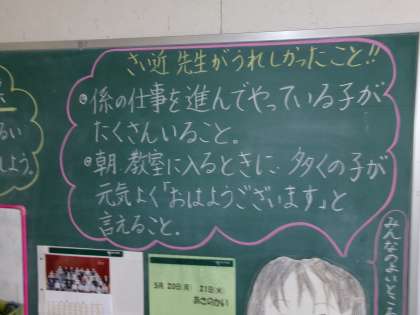 さい近 先生がうれしかったこと!!
・係の仕事を進んでやっている子が
たくさんいること。
・朝、教室に入るときに、多くの子が
元気よく「おはようございます」と
言えること。
みんなのよいところ
るい
しよう。
5月 20日(月) 21日(火)